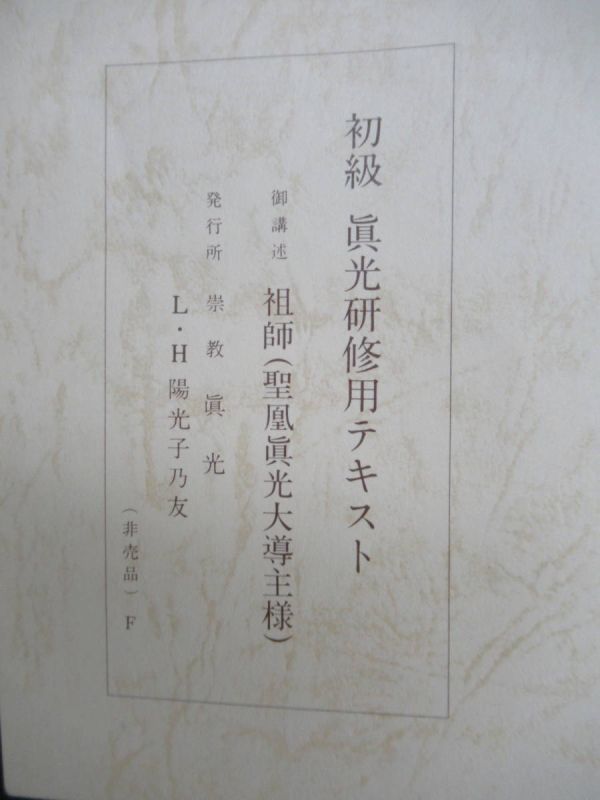 初級 眞光研修用テキスト
御講述 祖師（聖凰眞光大導主様）
発行所 崇教眞光
L・H陽光子乃友
（非売品）F